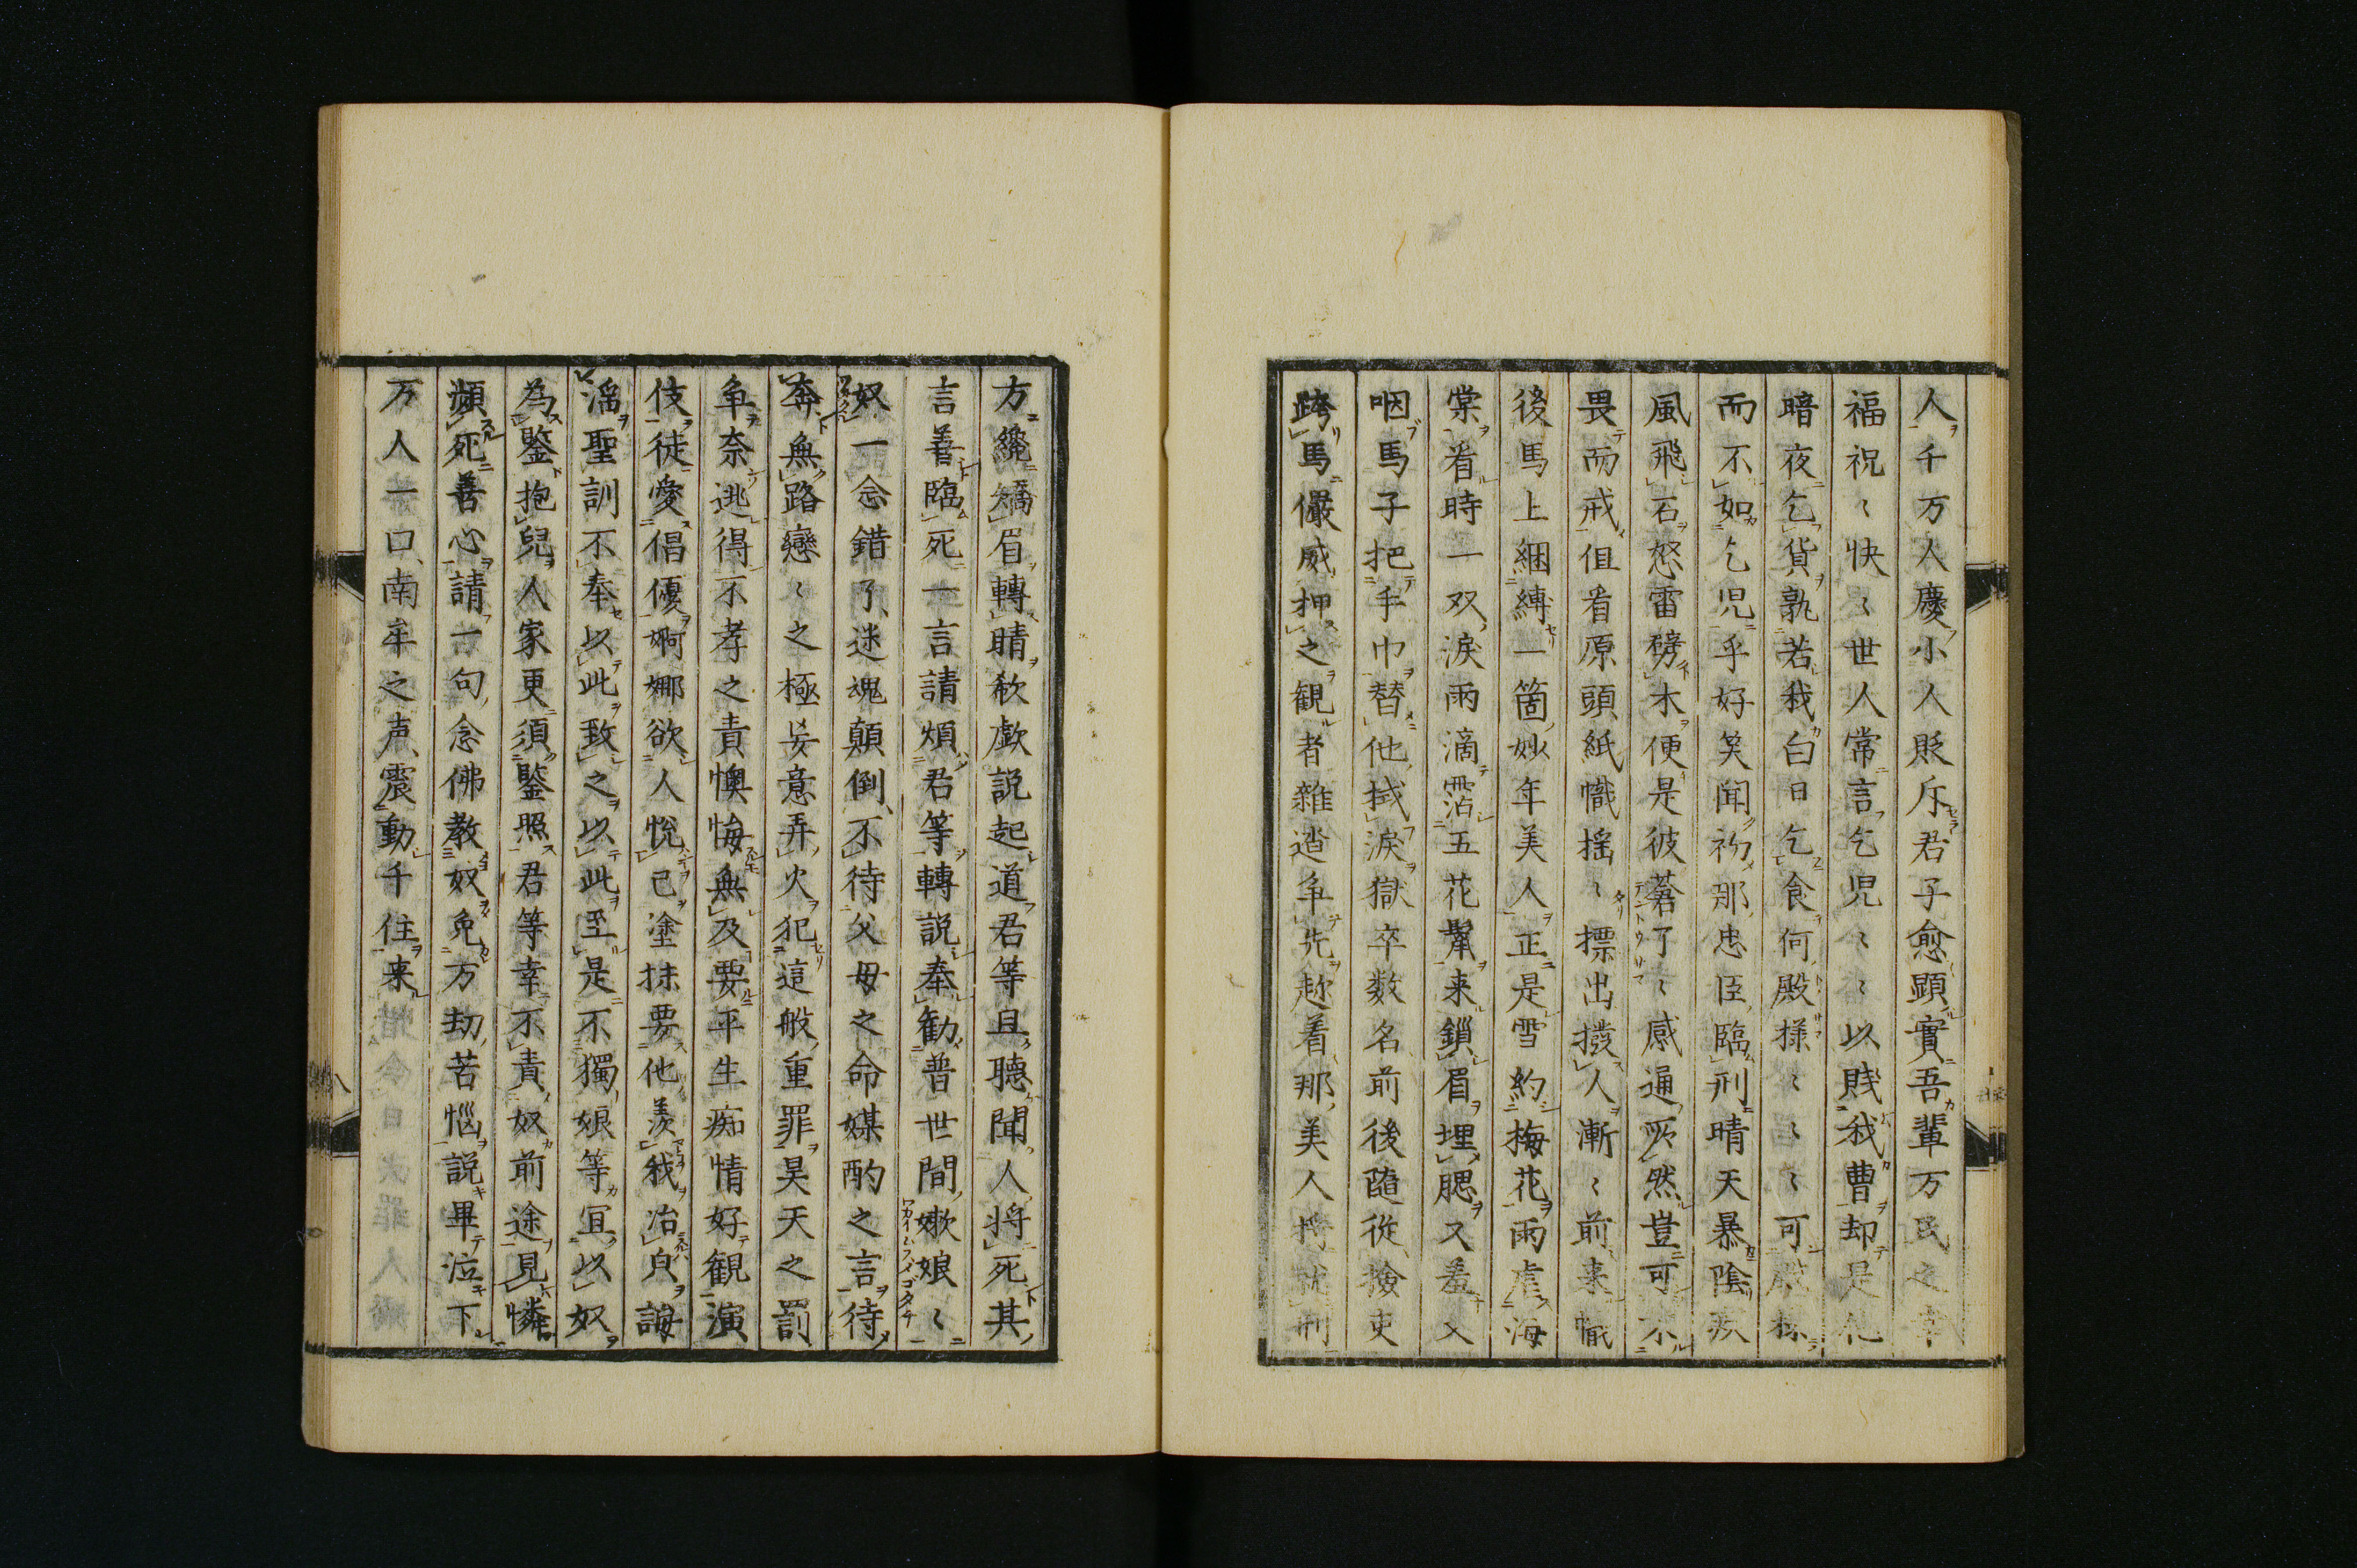 人千万人慶小人貶斥君子愈顕實吾輩万民之幸
福祝〻快〻世人常言乞児〻〻以賎我曹却是他
暗夜乞貨孰若我白日乞食何殿様〻〻〻可殿様
而不如乞児乎好笑聞初那忠臣臨刑晴天暴陰疾
風飛石怒雷劈木便是彼蒼了〻感通所然豈可不
畏而戒但看原頭紙幟揺〻摽出撥人漸〻前来幟
後馬上綑縛一箇妙年美人正是雪約梅花雨虐海
棠看時一双涙雨滴霑五花鬣来鎖眉埋腮又羞又
咽馬子把手巾替他拭涙獄卒数名前後随従撿吏
跨馬儼威押之観者雜遝争先趂着那美人将就刑
方纔矯眉轉睛欷歔説起道君等且聴聞人将死其
言善臨死一言請煩君等轉説奉勧普世間嫩娘〻
奴一念錯了迷魂顛倒不待父母之命媒酌之言待
奔無路戀〻之極妄意弄火犯這般重罪昊天之罰
争奈逃得不孝之責懊悔無及要平生痴情好観演
伎徒愛倡優婀娜欲人悦己塗抹要他羨我冶皃誨
滛聖訓不奉以此致之以此至是不獨娘等宜以奴
為鑒抱兒人家更須鑒照君等幸不責奴前途見憐
頻死善心請一句念佛教奴免万劫苦惱説畢泣下
万人一口南牟之声震動千住来